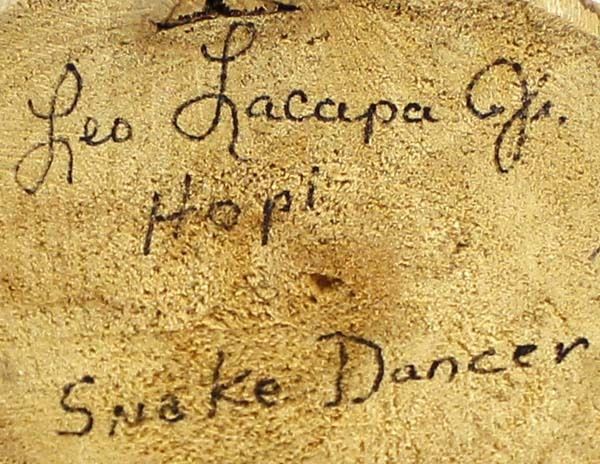 Leo Lacapa Jr.
Hopi
Snake Dancer